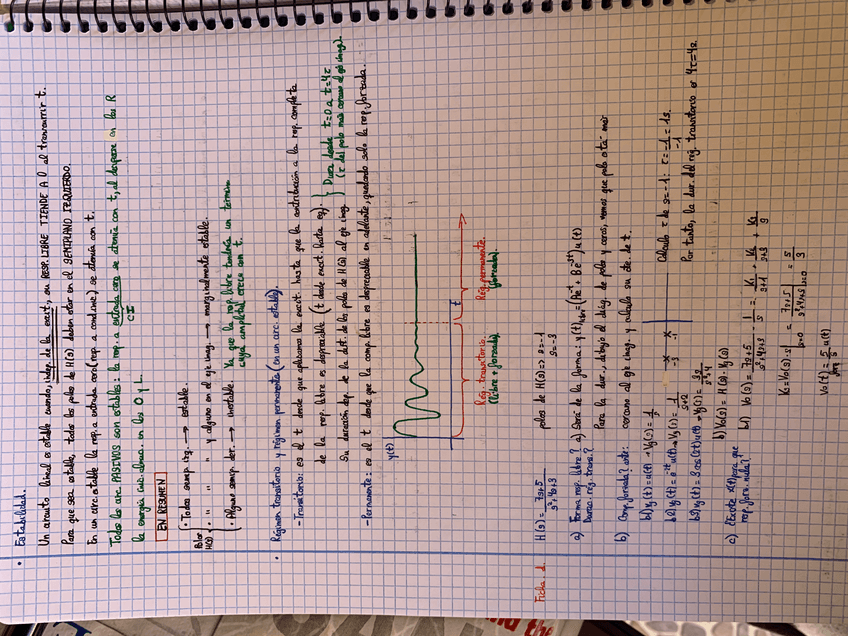 • Estabilidad.
Un circuito lineal es estable cuando, indep. de la excit., su RESP. LIBRE TIENDE A 0 al transcurrir t.
Para que sea estable, todos los polos de H(s) deben estar en el SEMIPLANO IZQUIERDO.
En un circ. estable la resp. a entrada cero (resp. a cond. inic.) se atenúa con t.
Todos los circ PASIVOS son estables: la resp. a entrada cero se atenúa con t, al disparse en las R
CI
la energía inic. almac. en las C y L.
EN RESUMEN
Polos H(s)
• Todos semip. izq. → estable.
• " " " y alguno en el eje imag. → marginalmente estable.
• Alguno semip. der. → inestable. Ya que la resp. libre tendría un término
cuya amplitud crece con t.
• Régimen transitorio y régimen permanente (en un circ. estable).
- Transitorio: es el t desde que aplicamos la excit. hasta que la contribución a la resp. completa
de la resp. libre es apreciable (t desde excit. hasta eq).
Su duración dep. de la dist. de los polos de H(s) al eje imag.
Dura desde t=0 a t=4τ
(τ del polo más cercano al eje imag).
- Permanente: es el t desde que la comp. libre es despreciable en adelante, quedando solo la resp. forzada.
y(t)
t
Rég. transitorio.
(libre + forzada).
Rég. permanente.
(forzada).
Ficha 1. H(s) = 7s+5 / s²+4s+3 polos de H(s) => s=-1
s=-3
a) Forma resp. libre? a) Será de la forma: y(t)libre = (Ae⁻ᵗ + Be⁻³ᵗ)u(t)
Durac. rég. trans.?
Para la dur., dibujo el diag. de polos y ceros, vemos que polo está más
b) Comp. forzada? ante: cercano al eje imag. y calculo su cte. de t.
b1) vg(t) = u(t) → Vg(s) = 1/s
-3 -1
Cálculo τ de s=-1: τ = -1/-1 = 1s.
b2) vg(t) = e⁻²ᵗu(t) → Vg(s) = 1/s+2
Por tanto, la dur. del rég. transitorio es 4τ=4s.
b3) vg(t) = 3cos(2t)u(t) → Vg(s) = 3s/s²+4
b) Vo(s) = H(s)·Vg(s)
c) Existe s(t) para que
resp. forz. nula?
b1) Vo(s) = 7s+5/s²+4s+3 · 1/s = K1/s+1 + K2/s+3 + K3/s
K3 = Vo(s)·s|s=0 = 7s+5/s²+4s+3|s=0 = 5/3
Vo(t) = 5/3 u(t)